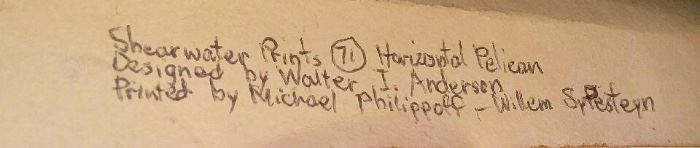 Shearwater Prints 71 Horizontal Pelican
Designed by Walter I. Anderson
Printed by Michael Philippoff - Willem